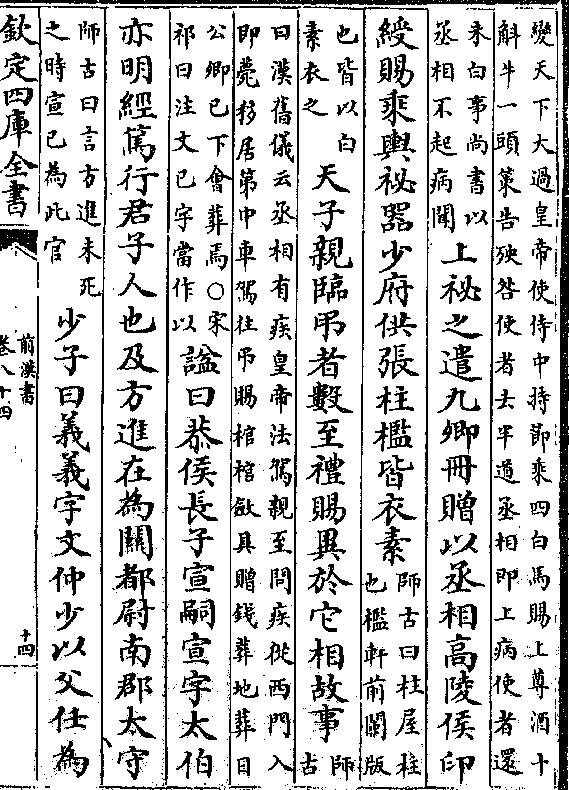 變天下大過皇帝使侍中持節乘四白馬賜上尊酒十
斛牛一頭策告殃咎使者去半道丞相即上病使者還
未白事尚書以
丞相不起病聞
上祕之遣九卿冊贈以丞相高陵侯印
綬賜乘輿祕器少府供張柱檻皆衣素
師古曰柱屋柱
也檻軒前闌版
也皆以白
素衣之
天子親臨弔者數至禮賜異於它相故事
師
古
曰漢舊儀云丞相有疾皇帝法駕親至問疾從西門入
即薨移居第中車駕往弔賜棺棺斂具贈錢葬地葬日
公卿已下會葬焉○宋
祁曰注文已字當作以
諡曰恭侯長子宣嗣宣字太伯
亦明經篤行君子人也及方進在為關都尉南郡太守
師古曰言方進未死
之時宣已為此官
少子曰義義字文仲少以父任為
欽定四庫全書
前漢書
卷八十四
十四